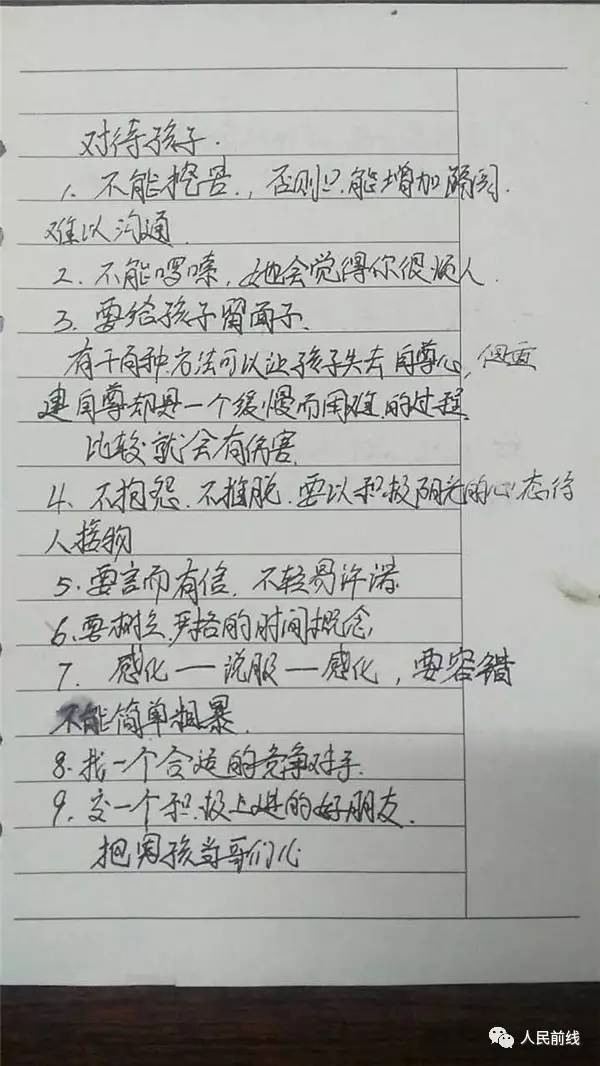 对待孩子.
1. 不能挖苦., 否则只能增加隔阂.
难以沟通.
2. 不能啰嗦, 她会觉得你很烦人.
3. 要给孩子留面子.
有千百种方法可以让孩子失去自尊心, 但重
建自尊却是一个缓慢而困难的过程.
比较就会有伤害.
4. 不抱怨. 不推脱. 要以积极阳光的心态待
人接物
5. 要言而有信. 不轻易许诺
6. 要树立严格的时间概念
7. 感化——说服——感化, 要容错
不能简单粗暴.
8. 找一个合适的竞争对手.
9. 交一个积极上进的好朋友.
把男孩当哥们儿
人民前线